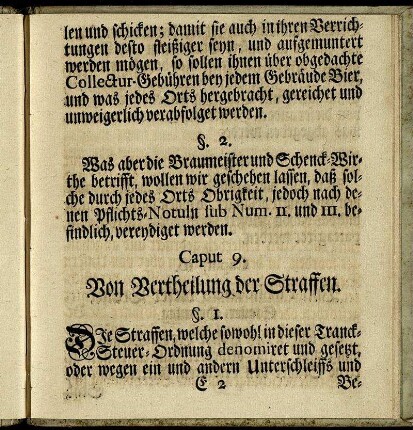 len und schicken; damit sie auch in ihren Verrich-
tungen desto fleißiger seyn, und aufgemuntert
werden mögen, so sollen ihnen über obgedachte
Collectur-Gebühren bey jedem Gebräude Bier,
und was jedes Orts hergebracht, gereichet und
unweigerlich verabfolget werden.
§. 2.
Was aber die Braumeister und Schenck-Wir-
the betrifft, wollen wir geschehen lassen, daß sol-
che durch jedes Orts Obrigkeit, jedoch nach de-
nen Pflichts-Notuln sub Num. II. und III. be-
findlich, vereydiget werden.
Caput 9.
Von Vertheilung der Straffen.
§. 1.
DJe Straffen, welche sowohl in dieser Tranck-
Steuer-Ordnung denomiret und gesetzt,
oder wegen ein und andern Unterschleiffs und
E 2 Be-